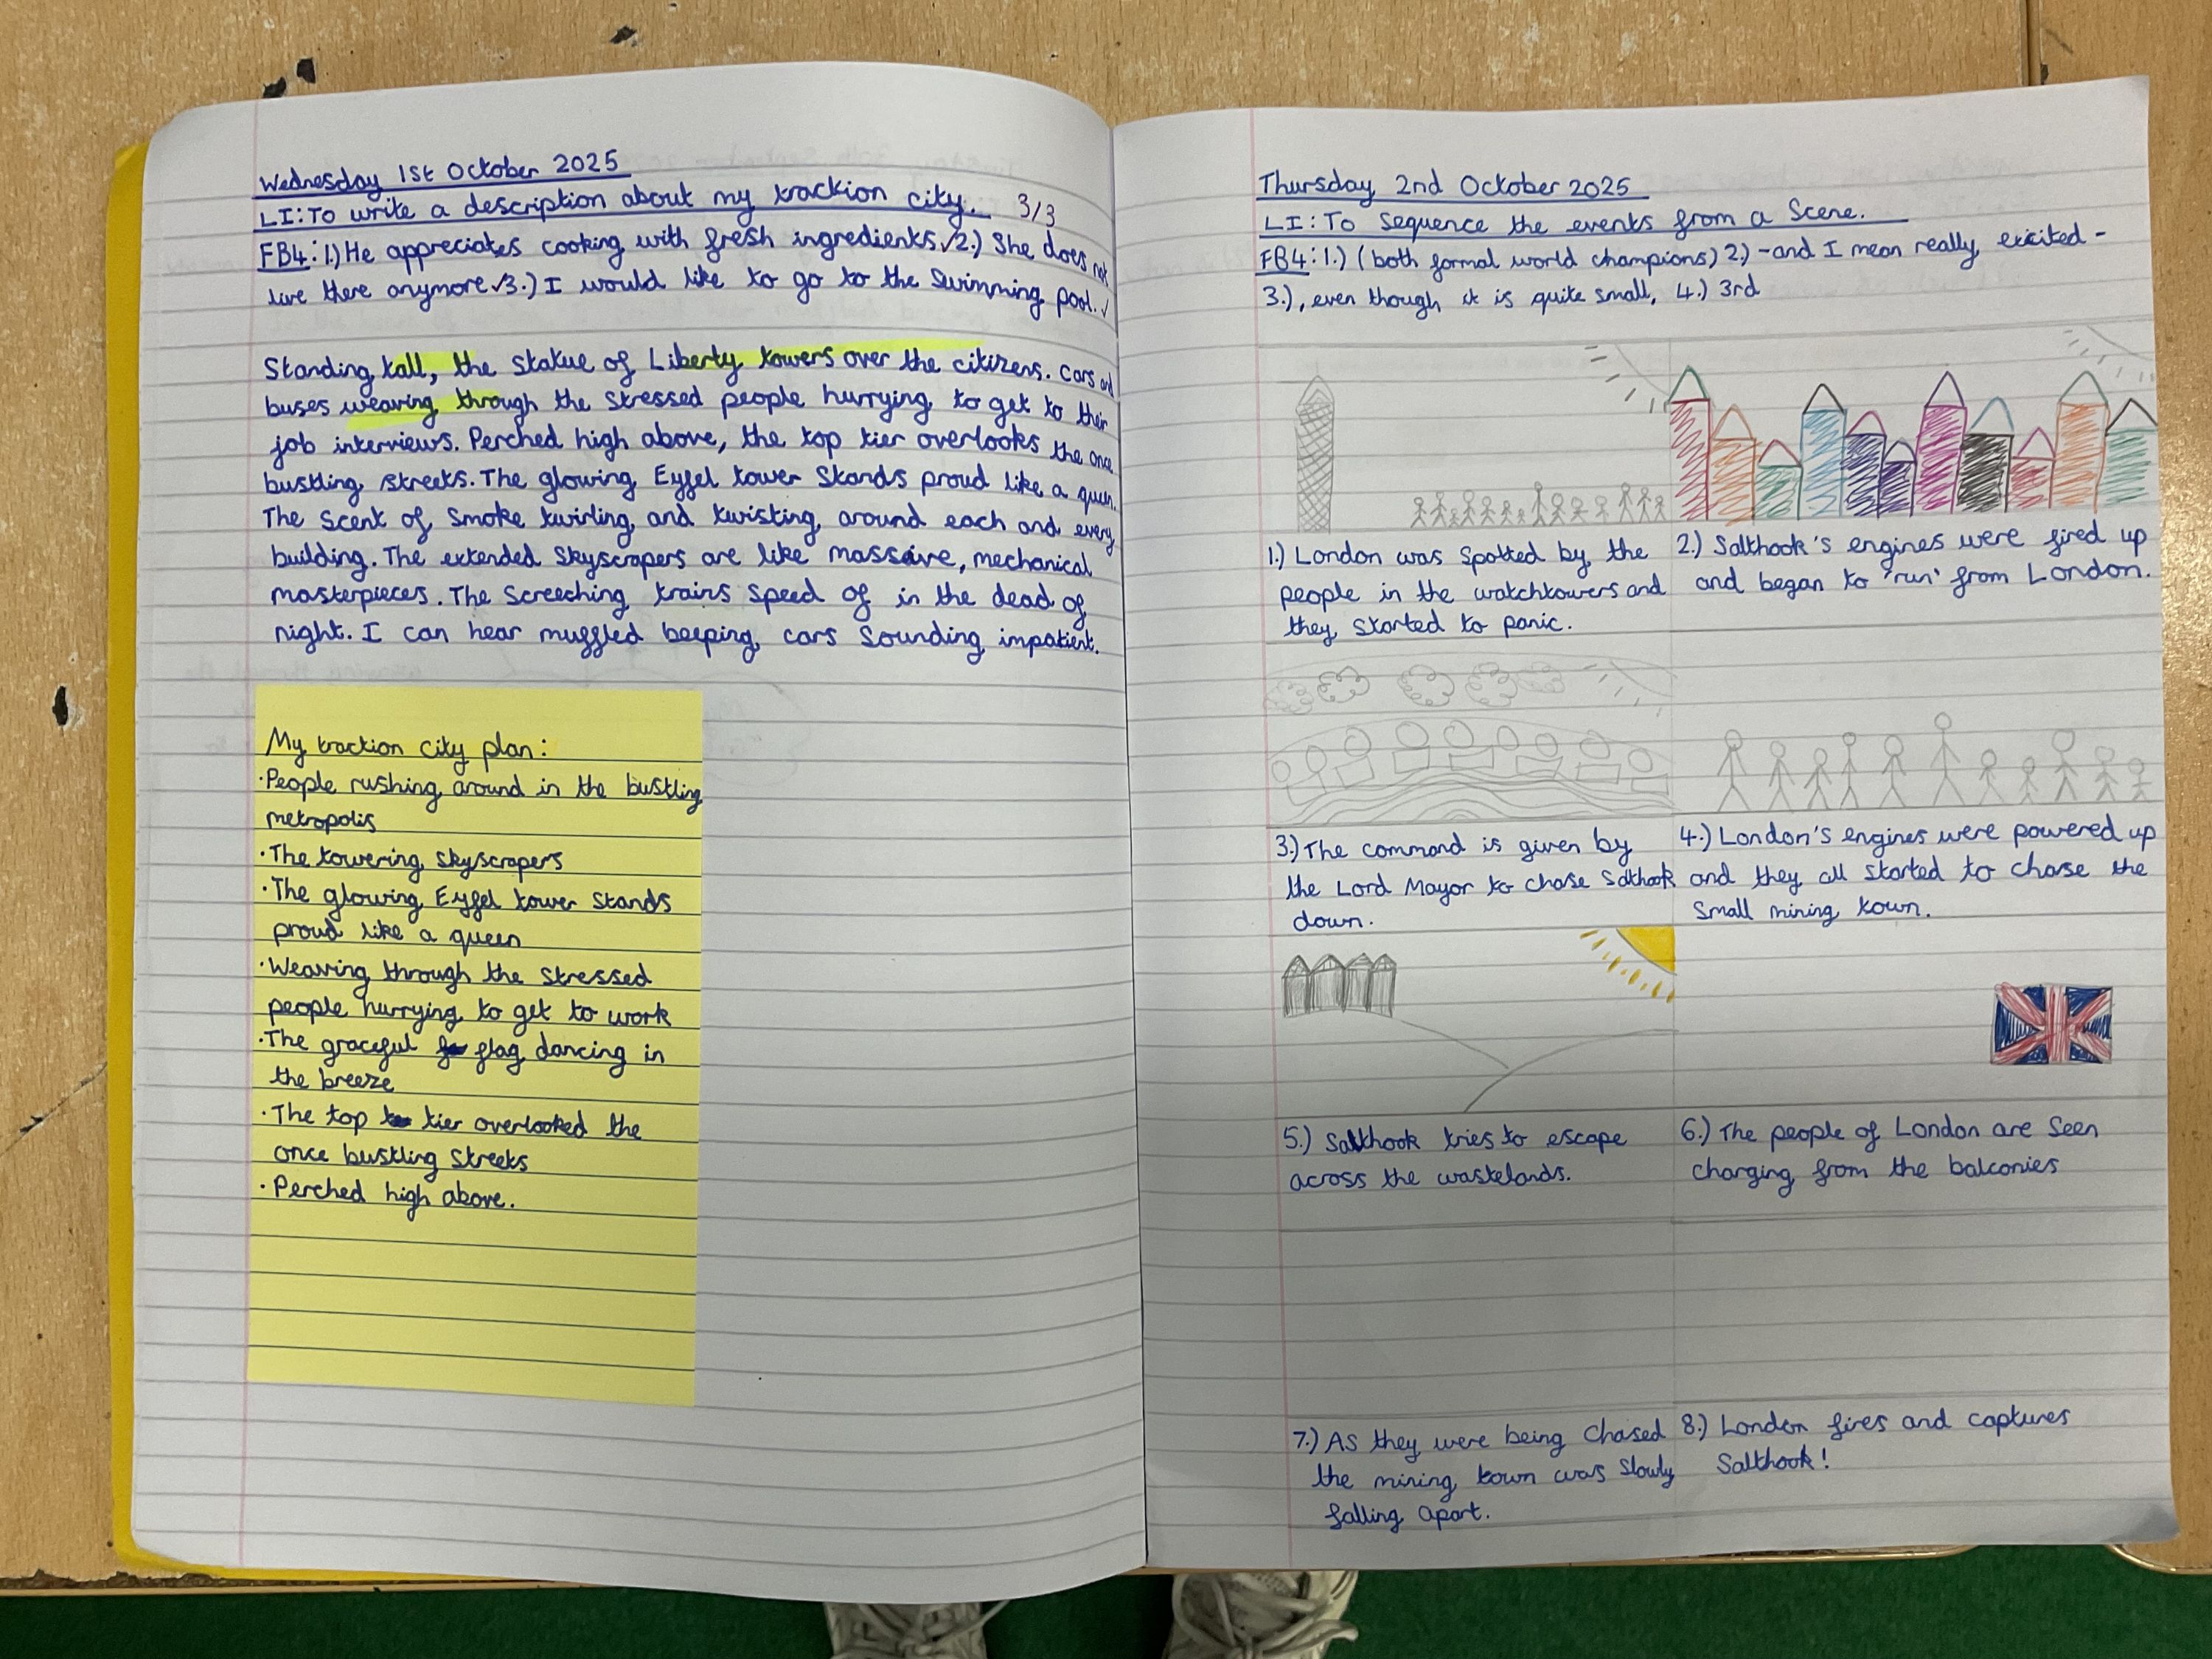 Wednesday 1st October 2025
LI: To write a description about my traction city. 3/3
FB4: 1.) He appreciates cooking with fresh ingredients.✓ 2.) She does not
live there anymore ✓ 3.) I would like to go to the Swimming pool. ✓
Standing tall, the statue of Liberty towers over the citizens. Cars and
buses weaving through the stressed people hurrying to get to their
job interviews. Perched high above, the top tier overlooks the once
bustling streets. The glowing Eyfel tower Stands proud like a queen.
The scent of smoke twirling and twisting around each and every
building. The extended skyscrapers are like massive, mechanical
masterpieces. The screeching trains speed of in the dead of
night. I can hear muffled beeping cars sounding impatient.
My traction city plan:
·People rushing around in the bustling
metropolis
·The towering skyscrapers
·The glowing Eyfel tower stands
proud like a queen
·Weaving through the stressed
people hurrying to get to work
·The graceful flag dancing in
the breeze
·The top tier overlooked the
once bustling streets
·Perched high above.
Thursday 2nd October 2025
LI: To Sequence the events from a Scene.
FB4: 1.) (both formal world champions) 2.) -and I mean really excited-
3.), even though it is quite small, 4.) 3rd
1.) London was spotted by the
people in the watchtowers and
they started to panic.
2.) Salthook's engines were fired up
and began to 'run' from London.
3.) The command is given by
the Lord Mayor to chase Salthook
down.
4.) London's engines were powered up
and they all started to chase the
small mining town.
5.) Salthook tries to escape
across the wastelands.
6.) The people of London are seen
charging from the balconies
7.) As they were being chased
the mining town was slowly
falling apart.
8.) London fires and captures
Salthook!